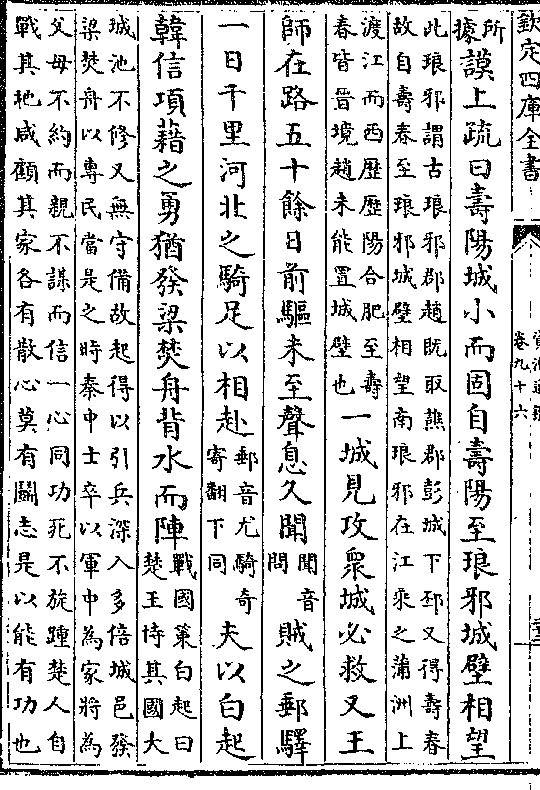 欽定四庫全書
卷九十六
所
據
謨上疏曰壽陽城小而固自壽陽至琅邪城壁相望
此琅邪謂古琅邪郡趙既取譙郡彭城下邳又得壽春
故自壽春至琅邪城壁相望南琅邪在江乘之蒲洲上
渡江而西歷歷陽合肥至壽
春皆晉境趙未能置城壁也
一城見攻衆城必救又王
師在路五十餘日前驅未至聲息久聞
聞音
問
賊之郵驛
一日千里河北之騎足以相赴
郵音尤騎奇
寄翻下同
夫以白起
韓信項藉之勇猶發梁焚舟背水而陣
戰國策白起曰
楚王恃其國大
城池不修又無守備故起得以引兵深入多倍城邑發
梁焚舟以專民當是之時秦中士卒以軍中為家將為
父母不約而親不謀而信一心同功死不旋踵楚人自
戰其地咸顧其家各有散心莫有鬭志是以能有功也